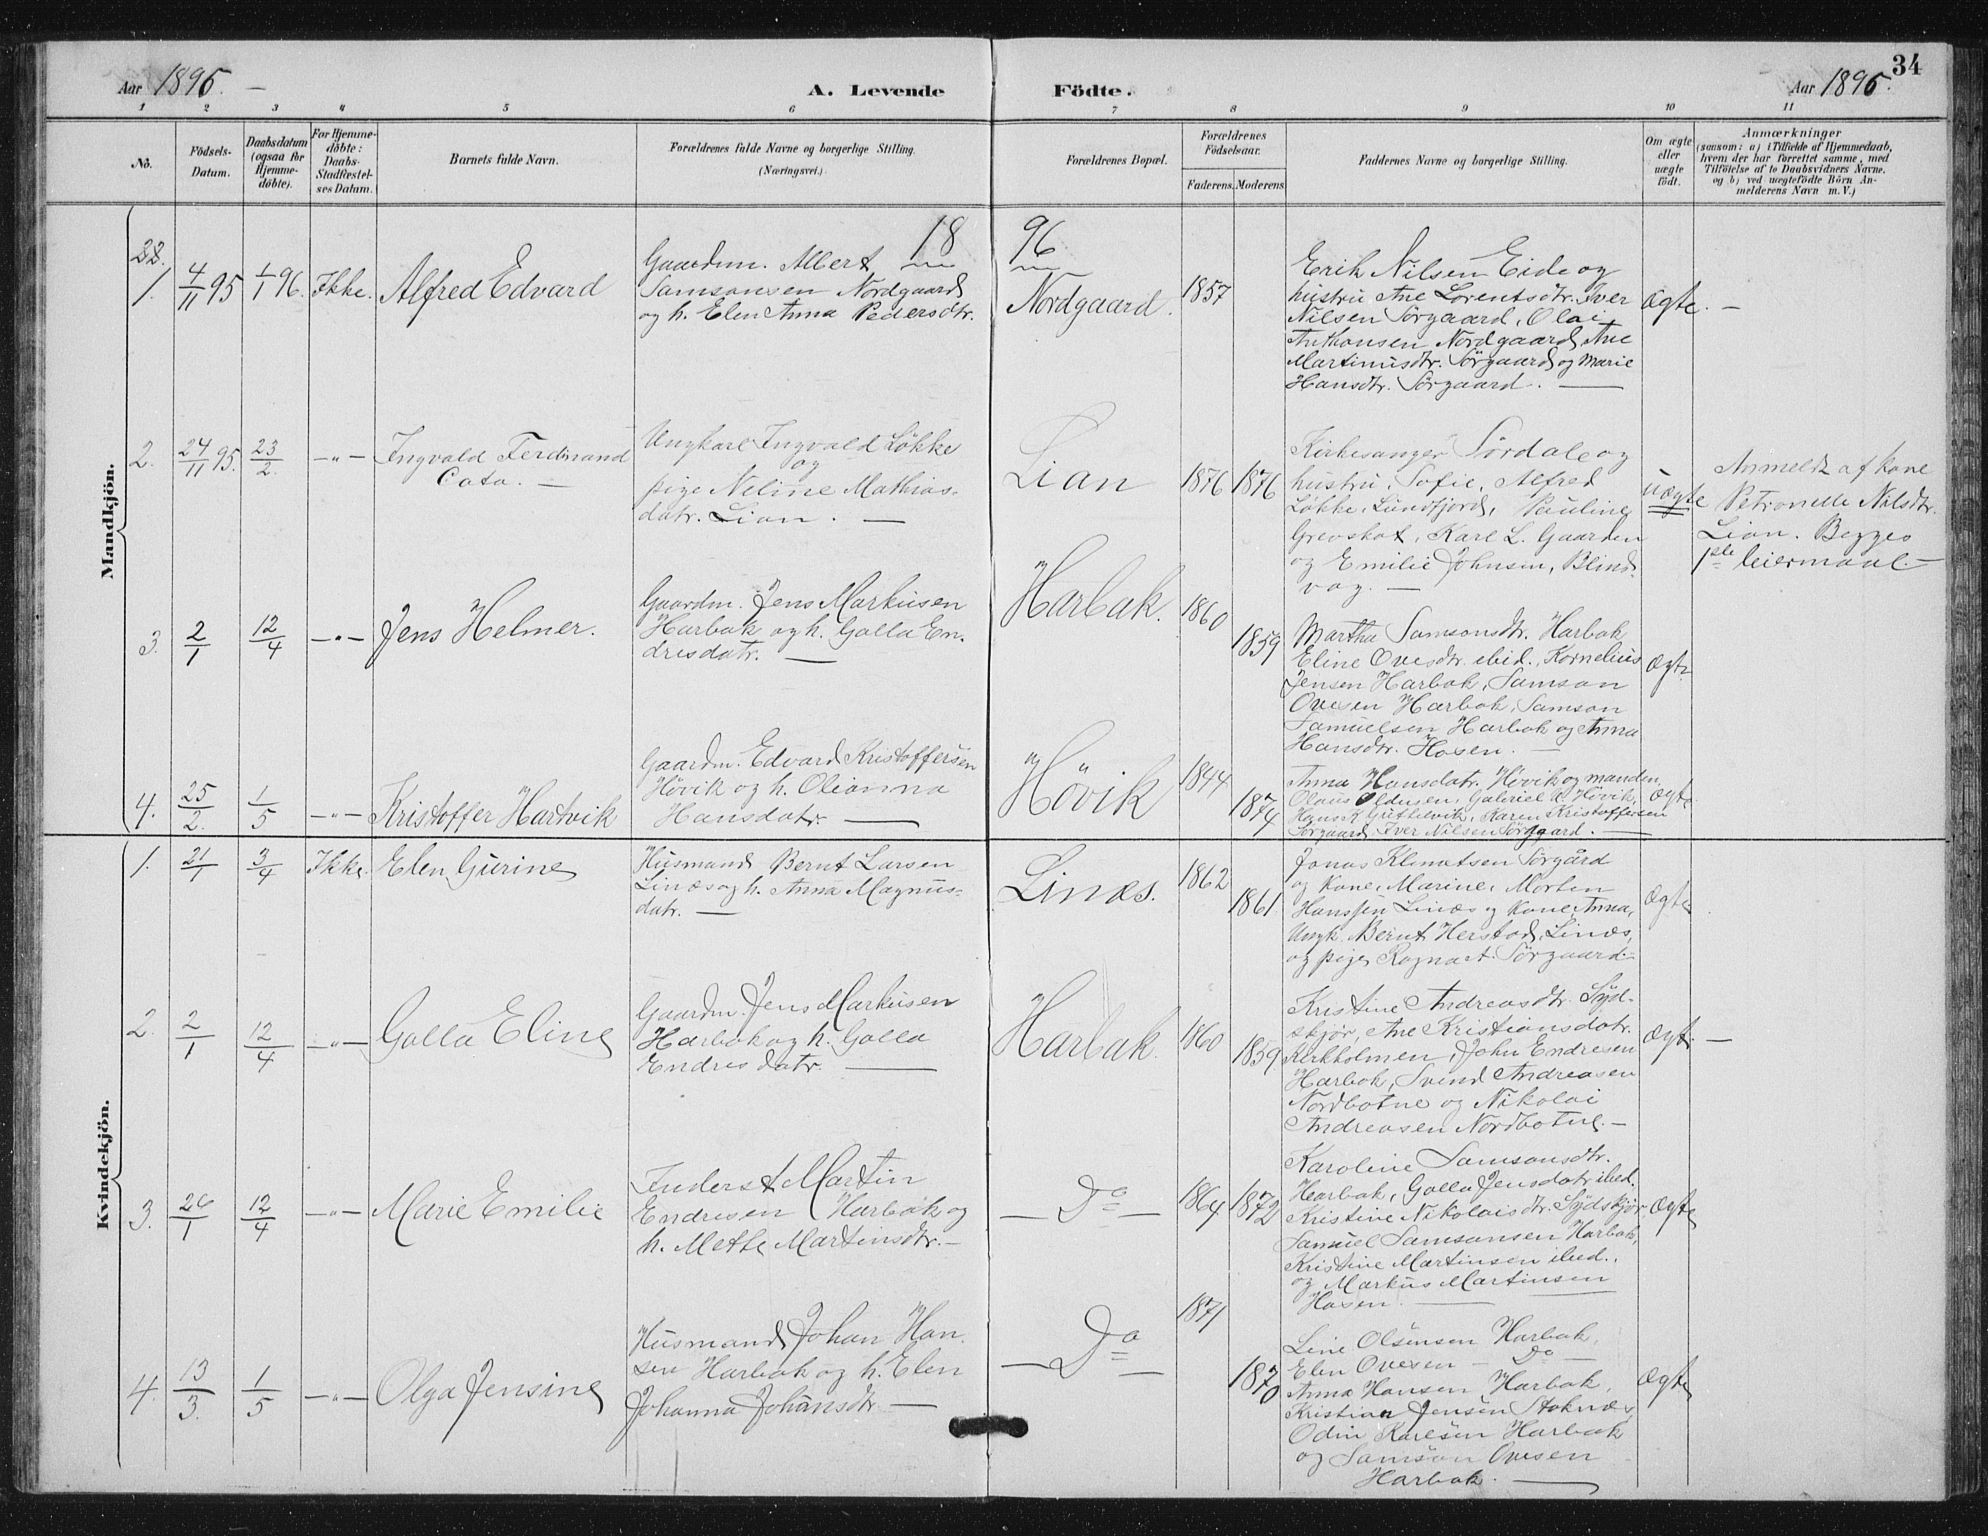 34
Aar 1896. A. Levende Födte. Aar 1896.
1 2 3 4 5 6 7 8 9 10 11
No.
Födsels-
Datum.
Daabsdatum
(ogsaa for
Hjemme-
döbte).
For Hjemme-
döbte:
Daabs-
Stadfæstel-
ses Datum.
Barnets fulde Navn.
Forældrenes fulde Navne og borgerlige Stilling.
(Næringsvei.)
Forældrenes Bopæl.
Forældrenes
Födselsaar.
Faderens. Moderens.
Faddernes Navne og borgerlige Stilling.
Om ægte
eller
uægte
födt.
Anmærkninger
(saasom: a) i Tilfælde af Hjemmedaab,
hvem der har forrettet samme, med
Tilföielse af to Daabsvidners Navne.
og b) ved uægtefödte Börn An-
melderens Navn m. V.)
Mandkjön.
18 96
22.
1. 4/11 95 1/1 96. Ikke. Alfred Edvard
Gaardm. Albert
Samsonsen Nordgaard
og h. Elen Anna Pedersdtr.
Nordgaard. 1857
Erik Nilsen Eide og
hustru Ane Lorentsdtr. Iver
Nilsen Sörgaard, Olai
Anthonsen Nordgaard, Ane
Martinusdtr. Sörgaard og Marie
Hansdtr. Sörgaard. —
Ægte. —
2. 24/11 95. 23/2. —"— Ingvald Ferdinand
Cato. —
Ungkarl Ingvald Løkke
og
pige Neline Mathias-
datr. Lian. —
Lian 1876 1876
Kirkesanger Sördal og
hustru Sofie, Alfred
Løkke, Lundfjord, Pauline
Grevskot, Karl L. Gaarden
og Emilie Johnsen, Blind-
vag. —
Uægte
Anmeldt af kone
Petronelle Nilsdtr.
Lian. Begges
1ste leiermaal. —
3. 2/1 12/4 —"— Jens Helmer.
Gaardm. Jens Markusen
Harbak og h. Golla En-
dresdatr. —
Harbak. 1860 1859
Martha Samsonsdtr. Harbak
Eline Ovesdtr. ibid., Kornelius
Jensen Harbak, Samson
Ovesen Harbak, Samson
Samuelsen Harbak og Anna
Hansdtr. Hosen. —
Ægte
4. 25/2. 1/5 —"— Kristoffer Hartvik
Gaardm. Edvard Kristoffersen
Hövik og h. Olianna
Hansdatr. —
Hövik 1844 1874
Anna Hansdatr. Hövik og manden
Olaus Oldusen, Gabriel K. Hövik,
Hans K. Guttelvik, Karen Kristoffersen
Sörgaard, Iver Nilsen Sörgaard. —
Ægte
Kvindekjön.
1. 21/1 3/4 Ikke. Elen Gurine
Husmand Bernt Larsen
Linæs og h. Anna Magnus-
datr. —
Linæs. 1862 1861
Jonas Klmetsen Sörgård
og Kone, Marine, Morten
Hanssen Linæs og Kone Anna,
Ungk. Bernt Herstad, Linæs,
og pige Ragna A. Sörgaard. —
Ægte
2. 2/1 12/4 —"— Golla Eline
Gaardm. Jens Markusen
Harbak og h. Golla
Endresdatr. —
Harbak. 1860 1859
Kristine Andreasdtr. Syd-
skjör, Ane Kristiansdatr.
Kerkholmen, John Endresen
Harbak, Svend Andreasen
Nordbotne og Nikolai
Andreasen Nordbotne. —
Ægte —
3. 26/1 12/4 —"— Marie Emilie
Inderst Martin
Endresen Harbak og
h. Mette Martinsdtr. —
— Do — 1864 1872
Karoline Samsonsdtr.
Harbak, Golla Jensdatr. ibed.
Kristine Nikolaisdtr. Sydskjör,
Samuel Samsonsen Harbak,
Kristine Martinsen ibed.,
og Markus Martinsen
Hosen. —
Ægte
4. 13/3. 1/5 —"— Olga Jensine
Husmand Johan Han-
sen Harbak og h. Elen
Johanna Johansdtr. —
— Do — 1871 1870
Line Olsensen Harbak,
Elen Ovesen — Do —
Anna Hansen Harbak,
Kristian Jensen Stoknæs,
Odin Karlsen Harbak
og Samson Ovesen
Harbak. —
Ægte